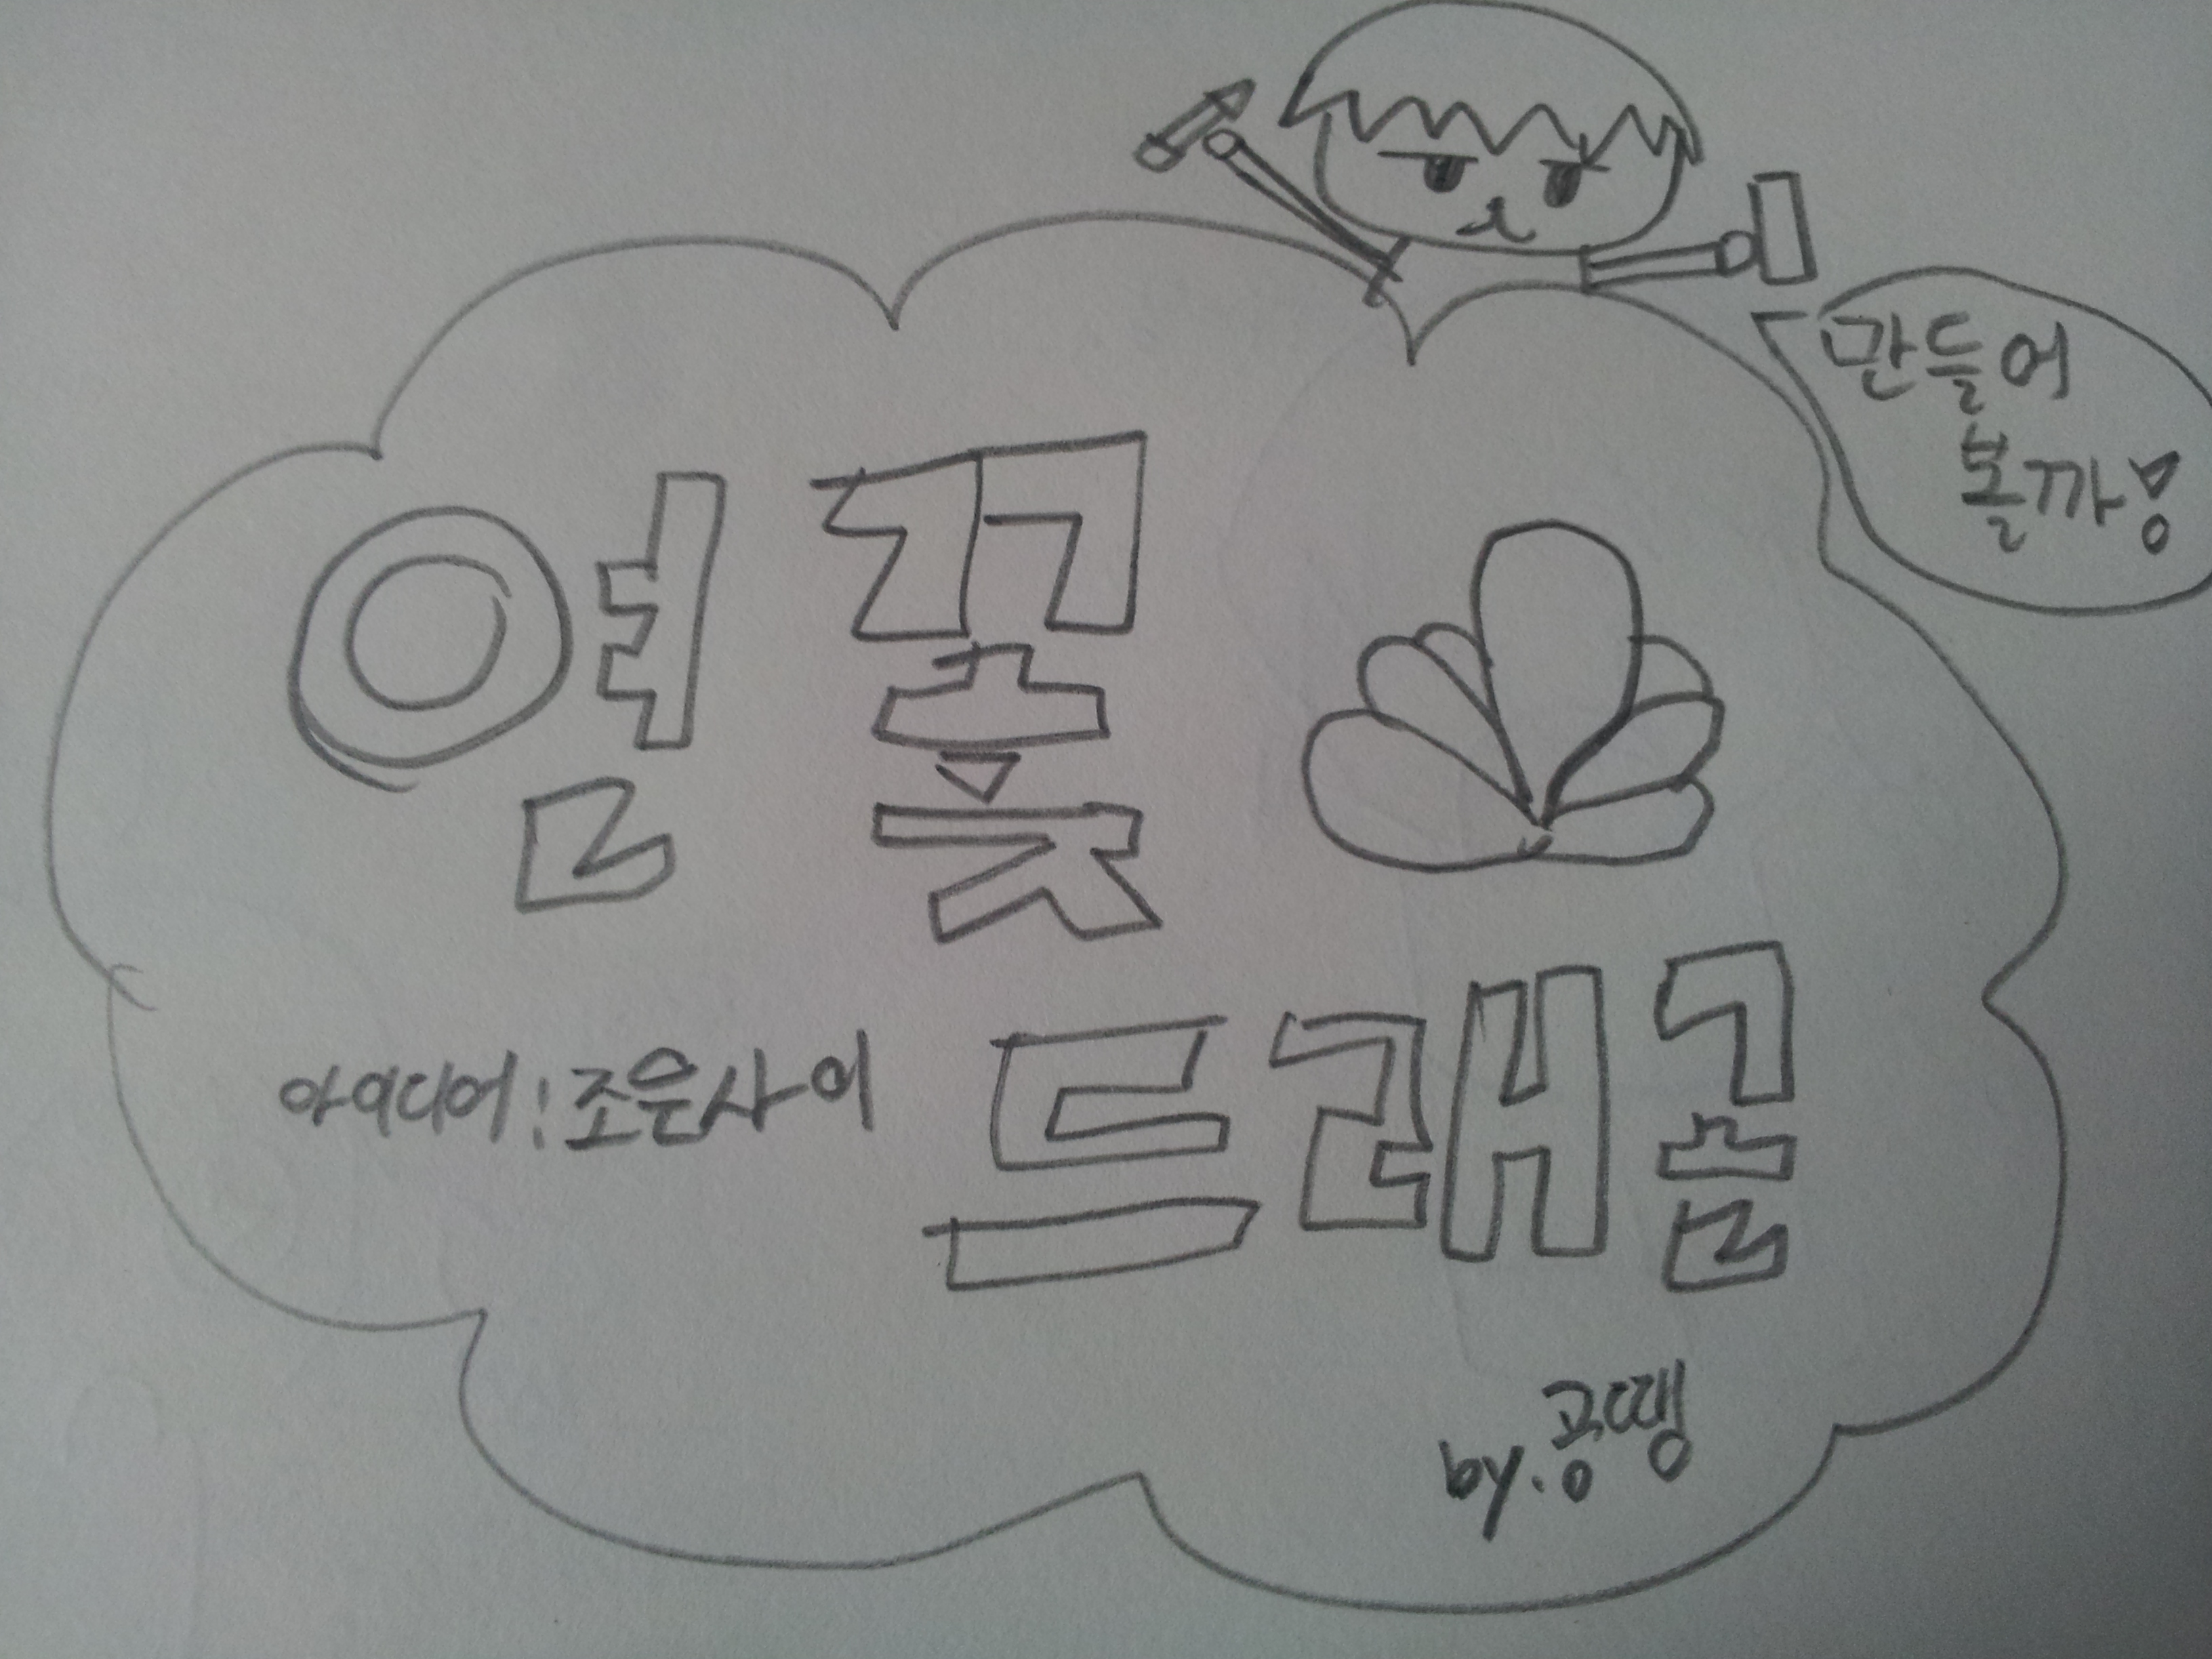 만들어
볼까!
연꽃
드래곤
아이디어:조은사이
by.공땡